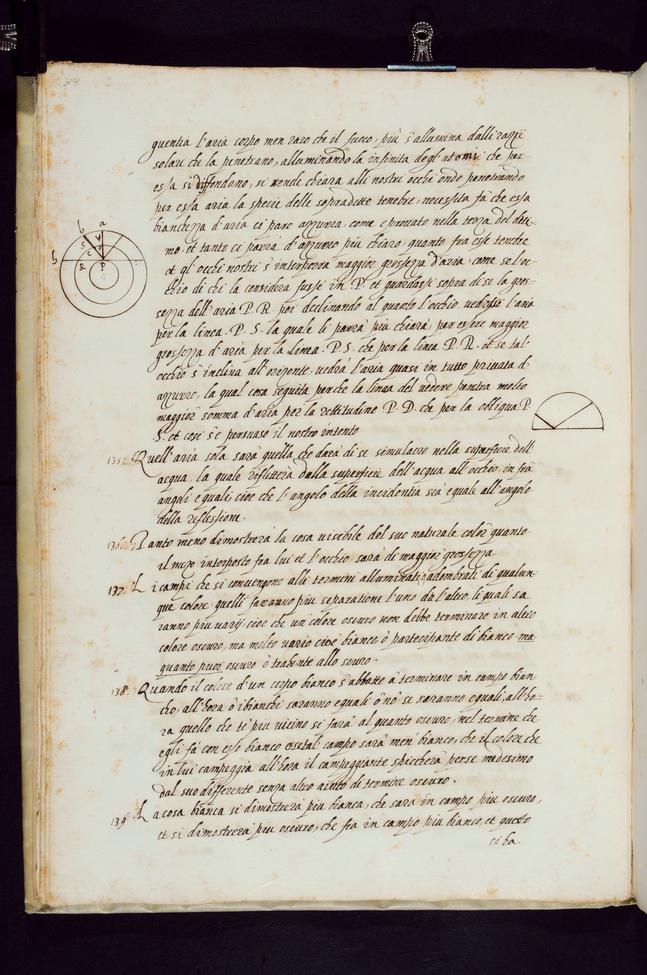 33
guentia l'aria corpo men raro che il fuoco, più s'allumina dalli razzi
solari che la penetrano, alluminando la infinita degl'atomi che per
essa si diffondono, si rende chiara alli nostri occhi onde penetrando
per essa aria la specie delle sopradette tenebre, necessita fà che essa
bianchezza d'aria ci pare azzurra, come è provato nella terza del deci-
mo, et tanto ci parrà d'azzurro più chiaro, quanto fra esse tenebre
et gl'occhi nostri s'interporrà maggior grossezza d'aria, come se l'oc-
chio di chi la considera fusse in .P. et guardasse sopra di se la gros-
sezza dell'aria P. R. poi declinando al quanto l'occhio vedesse l'aria
per la linea .P. S. la quale li parrà più chiara, per essere maggior
grossezza d'aria per la linea .P. S. che per la linea P. R. et se tal'
occhio s'inclina all'orizonte, vedrà l'aria quasi in tutto privata d'
azzurro, la qual cosa seguita perche la linea del vedere penetra molto
maggior somma d'aria per la rettitudine P. D. che per la obliqua P.
S. et cosi s'è persuaso il nostro intento
135. Quell'aria sola sarà quella che darà di se simulacro nella superficie dell'
acqua, la quale rifletterà dalla superficie dell'acqua all'occhio in frà
angoli equali cioe che l'angolo della incidentia sia equale all'angolo
della riflessione.
136. Tanto meno dimostrerà la cosa visebile del suo naturale color quanto
il mezo interposto fra lui et l'occhio sarà di maggior grossezza
137. Li campi che si convengono alli termini alluminati adombrati di qualun-
que colore quelli faranno più separatione l'uno da l'altro, li quali sa
ranno più varij cioe che un colore oscuro non debbe terminare in altro
colore oscuro, ma molto vario cioè bianco, ò partecipante di bianco ma
quanto puoi oscuro ò trahente allo scuro.
138. Quando il colore d'un corpo bianco s'abbatte à terminare in campo bian
cho, all'hora ò i bianchi saranno equali ò nò se saranno equali, all'ho-
ra quello che te più vicino si farà al quanto oscuro, nel termine che
egli fà con esso bianco tal campo sarà men' bianco, che il colore che
in lui campeggia all'hora il campeggiante spicchera per se medesimo
dal suo differente senza altro aiuto di termine oscuro.
139. La cosa bianca si dimostrerà più bianca, che sarà in campo più oscuro,
et si dimostrerà più oscura, che fia in campo più bianco, et questo
ci ha.
b
a
b
S
R
P